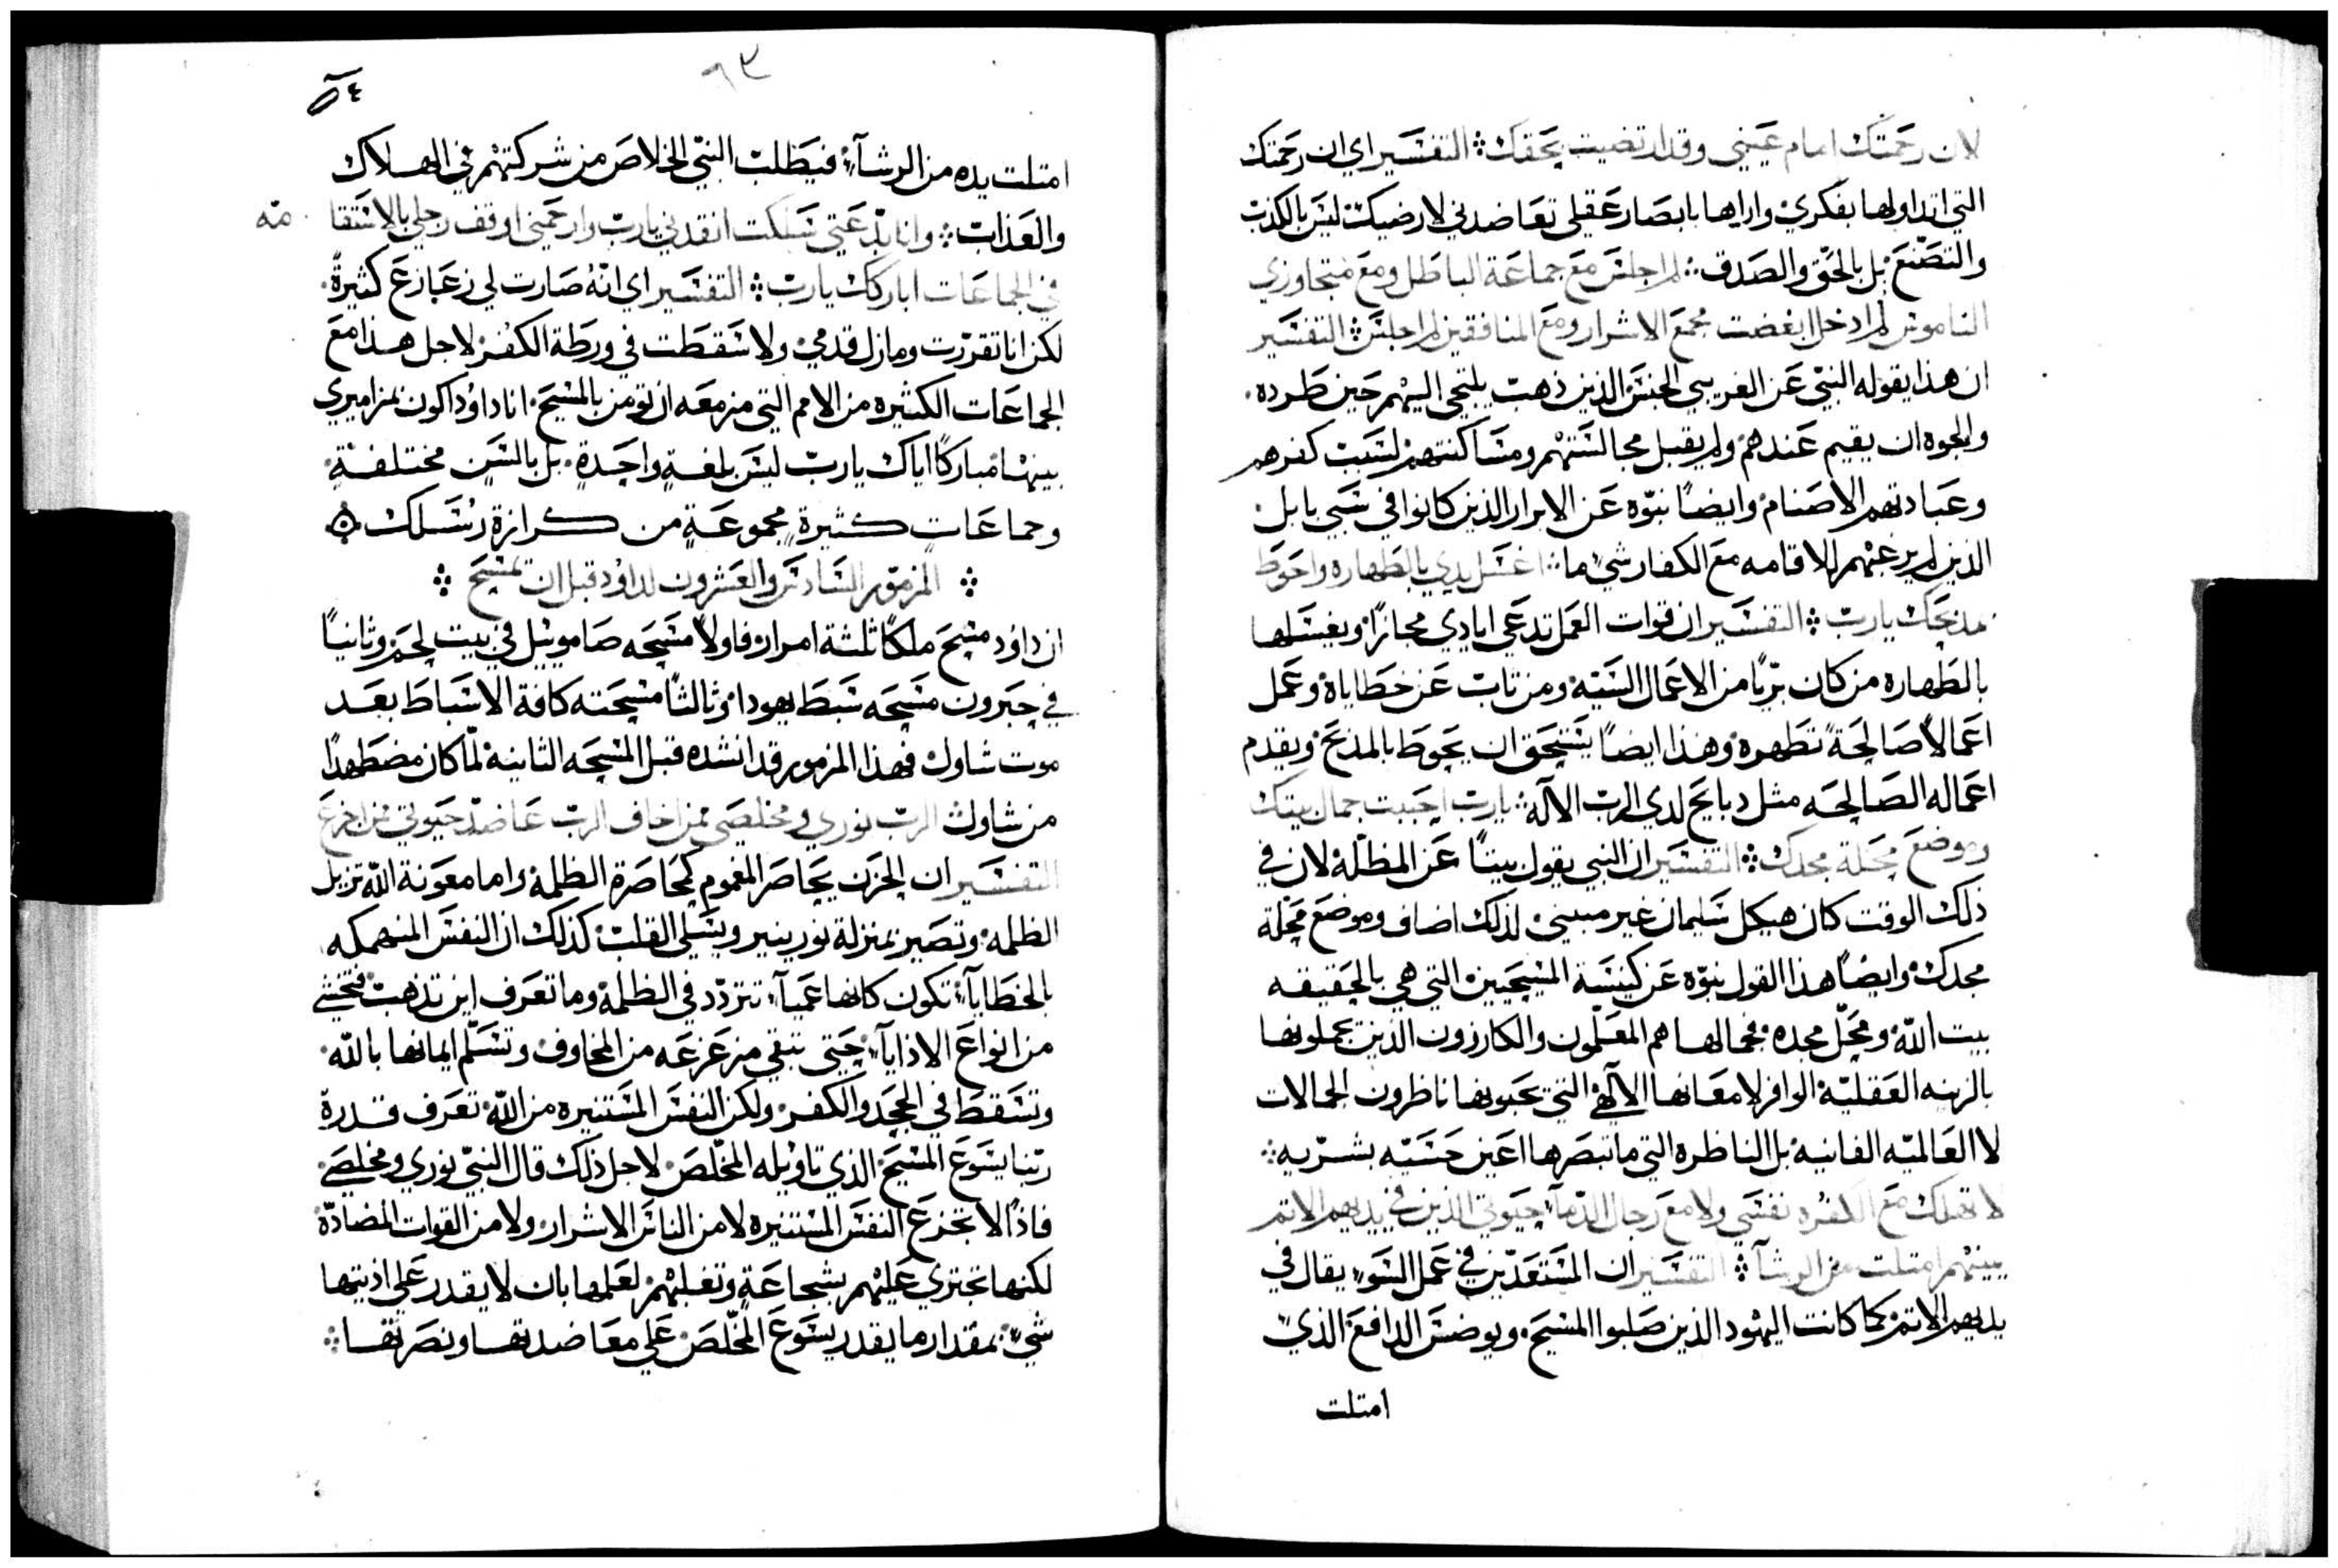 لان رحمتك امام عيني وقد ارتضيت بحقك ⁘ التفسير اي ان رحمتك
التي اتداولها بفكري واراها بابصار عقلي تعاضدني لارضيك ليس بالكذب
والتصنع بل بالحق والصدق ⁘ لم اجلس مع جماعة الباطل ومع متجاوزي
الناموس لم ادخل ابغضت مجمع الاشرار ومع المنافقين لم اجلس ⁘ التفسير
ان هذا يقوله النبي عن الغريبي الجنس الذين ذهب يلتجي اليهم حين طرده
والجوه ان يقيم عندهم ولم يقبل مجالستهم ومساكنتهم لسبب كفرهم
وعبادتهم الاصنام وايضاً نبوه عن الابرار الذين كانوا في سبي بابل
الذين لم يرد عنهم الاقامه مع الكفار شي ما ⁘ اغسل يدي بالطهاره واحوط
مذبحك يارب ⁘ التفسير ان قوات العمل تدعي ايادي مجازاً ويغسلها
بالطهاره من كان برياً من الاعمال السيته ومن تاب عن خطاياه وعمل
اعمالاً صالحةً تطهره وهذا ايضاً يستحق ان يحوط بالمذبح ويقدم
اعماله الصالحه مثل دبايح لدي الرب الآله ⁘ يارب احببت جمال بيتك
وموضع محلة مجدك ⁘ التفسير ان النبي يقول بيتاً عن المظلة لان في
ذلك الوقت كان هيكل سليمان غير مبيني لذلك اضاف وموضع محلة
مجدك وايضاً هذا القول نبوه عن كنيسة المسيحيين التي هي بالحقيقه
بيت الله ومحل مجده فجمالها هم المعلمون والكارزون الذين يجملونها
بالزينه العقليّة الوافر لامعانها الآلهي التي يحبونها ناظرون الجمالات
لا العالميّه الفانيه بل الناظره التي ما تبصرها اعين حسيّه بشريه ⁘
لا تهلك مع الكفره نفسي ولا مع رجال الدمآ حيوتي الذين في يديهم الاتم
يمينهم امتلت من الرشآ ⁘ التفسير ان المستعدّين في عمل السوء يقال في
يديهم الاتم كما كانت اليهود الذين صلبوا المسيح ويوضس الدافع الذي
امتلت
٦٣
٥٤
امتلت يده من الرشآء فيطلب النبي الخلاص من شركتهم في الهلاك
والعذاب ⁘ وانا بدعتي سلكت انقدني يارب وارحمني اوقف رجلي بالاستقا
مه
في الجماعات اباركك يارب ⁘ التفسير اي انه صارت لي زعازع كثيرة
لكن انا تقررت وما زل قدمي ولا سقطت في ورطة الكفر لاجل هذا مع
الجماعات الكثيره من الامم التي مزمعه ان تومن بالمسيح انا داوُد اكون بمزاميري
بينها مباركاً اياك يارب ليس بلغةٍ واحدةٍ بل بالسن مختلفةٍ
وجماعاتٍ كثيرةٍ مجموعةٍ من كرازة رسلك
⁘ المزمور السادس والعشرون لداوُد قبل ان يمسيح ⁘
ان داوُد مسح ملكاً ثلثة امرار فاولاً مسحه صامويل في بيت لحم وثانياً
في حبرون مسحه سبط يهودا وثالثاً مسحته كافة الاسباط بعد
موت شاول فهذا المزمور قد انشده قبل المسحه الثانيه لما كان مضطهداً
من شاول الرب نوري ومخلصي ممن اخاف الرب عاضد حيوتي ممن اجزع
التفسير ان الحزن يحاصر المغموم كمحاصرة الظلمة واما معونة الله تزيل
الظلمه وتصير بمنزلة نور ينير ويسلي القلب كذلك ان النفس المنهمكه
بالخطايآ تكون كانها عميآ تتردد في الظلمة وما تعرف اين تذهب فتخشي
من انواع الاذايآ حتي تبقي مزعزعه من المخاوف وتسلّم ايمانها بالله
وتسقط في الجحد والكفر ولكن النفس المستنيره من الله تعرف قدرة
ربنا يسوع المسيح الذي تاويله المخلص لاجل ذلك قال النبي نوري ومخلصي
فاذاً لا تجزع النفس المستنيره لا من الناس الاشرار ولا من القوات المضادّة
لكنها تجتري عليهم بشجاعةٍ وتغلبهم لعلمها بان لا يقدر علي اذيتها
شيء بمقدار ما يقدر يسوع المخلص علي معاضدتها ونصرتها ⁘